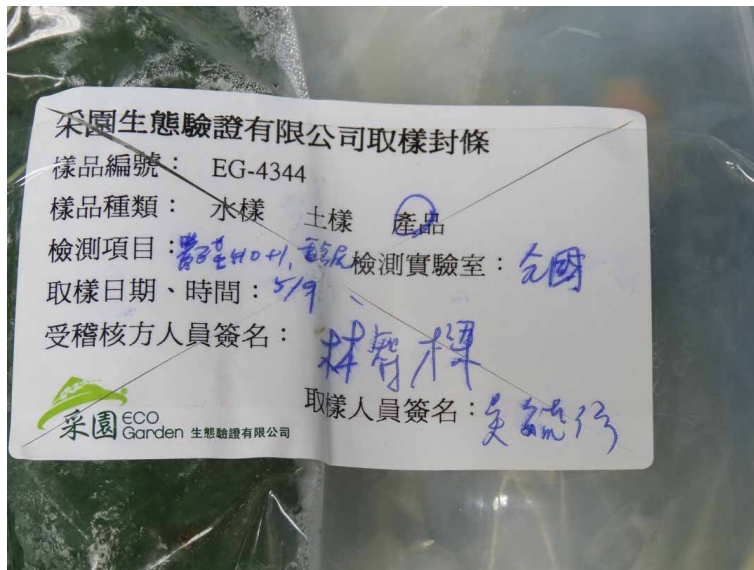 采園生態驗證有限公司取樣封條
樣品編號: EG-4344
樣品種類: 水樣 土樣 產品
檢測項目: 農藥410+1, 重金屬 檢測實驗室: 全國
取樣日期、時間: 5/9、
受稽核方人員簽名: 林智標
取樣人員簽名: 吳
采園 ECO Garden 生態驗證有限公司